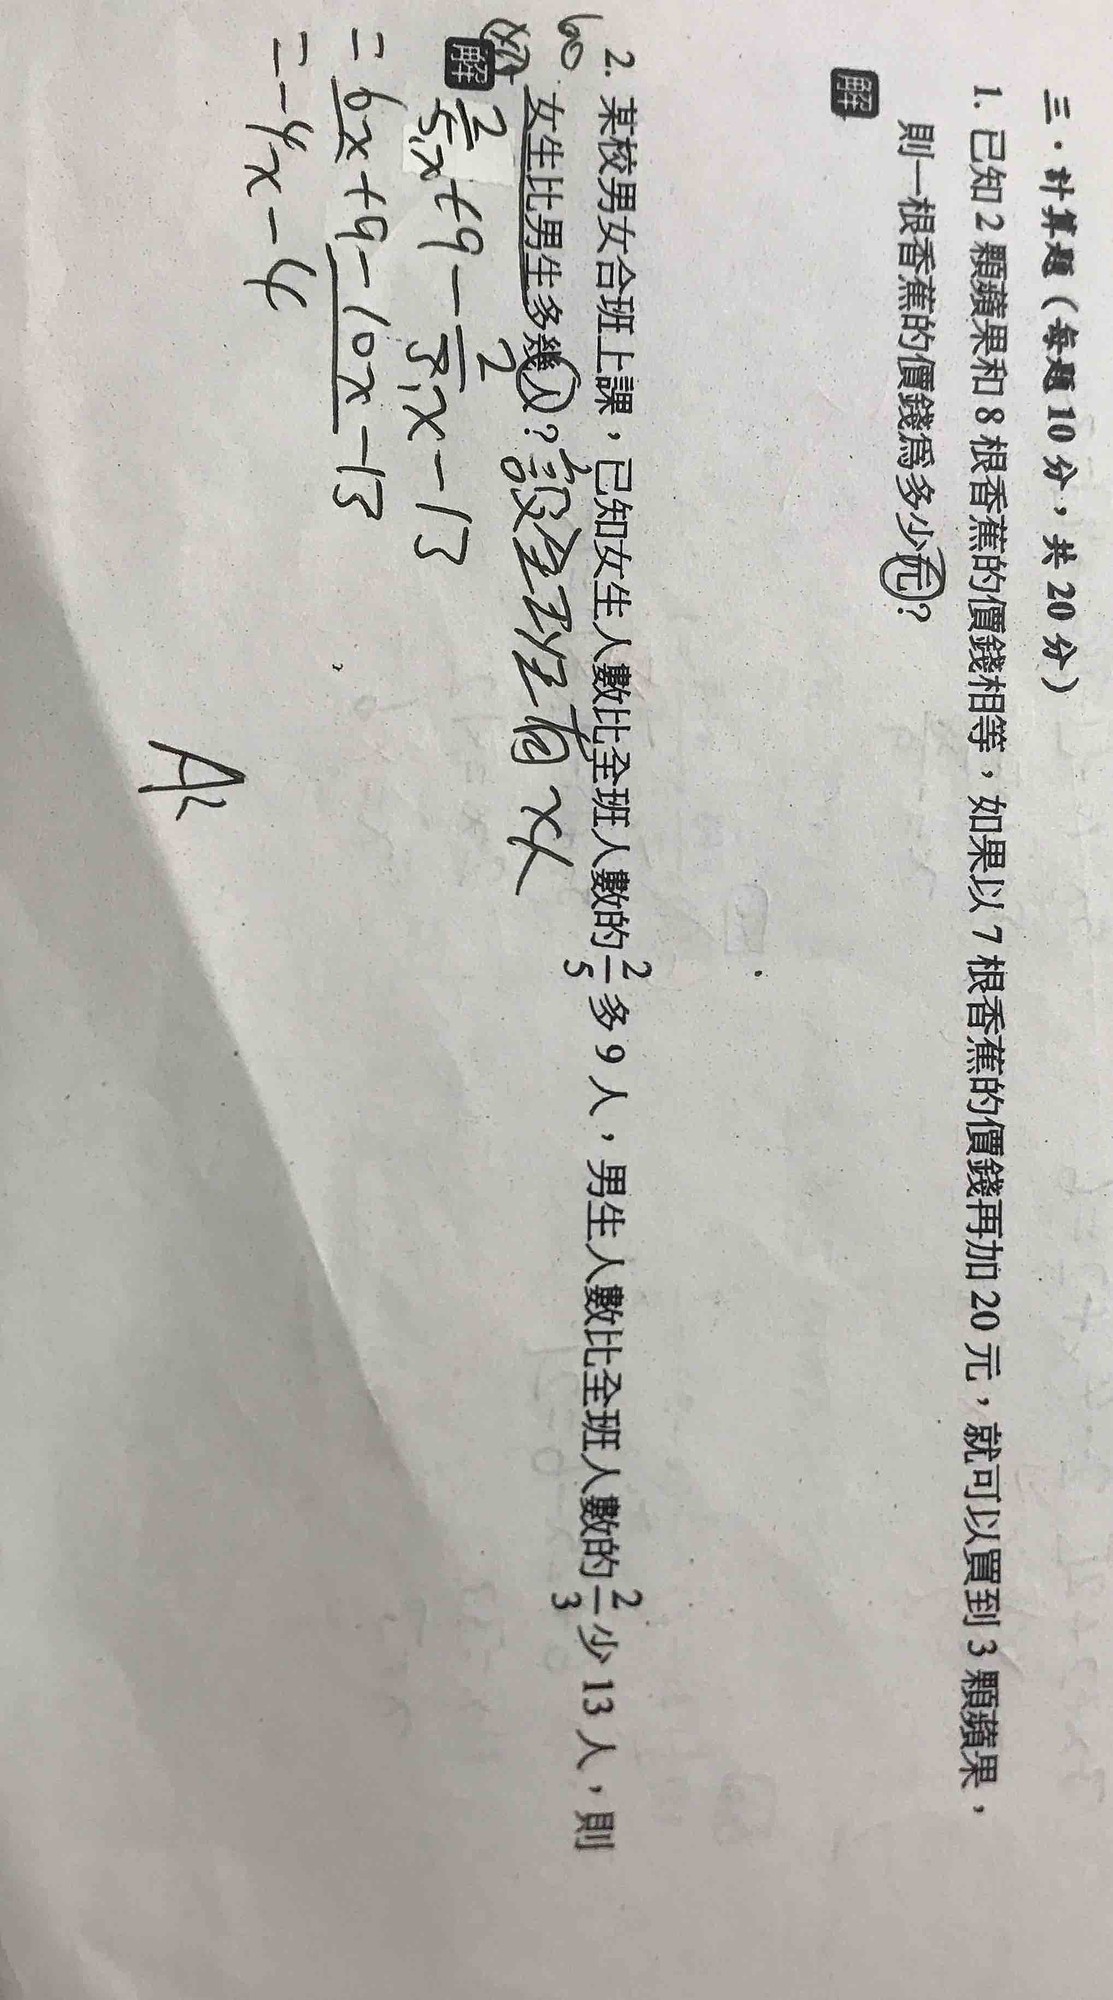 三、計算題(每題10分,共20分)
1. 已知2顆蘋果和8根香蕉的價錢相等,如果以7根香蕉的價錢再加20元,就可以買到3顆蘋果,
則一根香蕉的價錢為多少元?
解
2. 某校男女合班上課,已知女生人數比全班人數的2/5多9人,男生人數比全班人數的2/3少13人,則
60 女生比男生多幾人?設全班有x人
解 2/5x+9-2/3x-13
=6x+9-10x-13
=-4x-4
A: